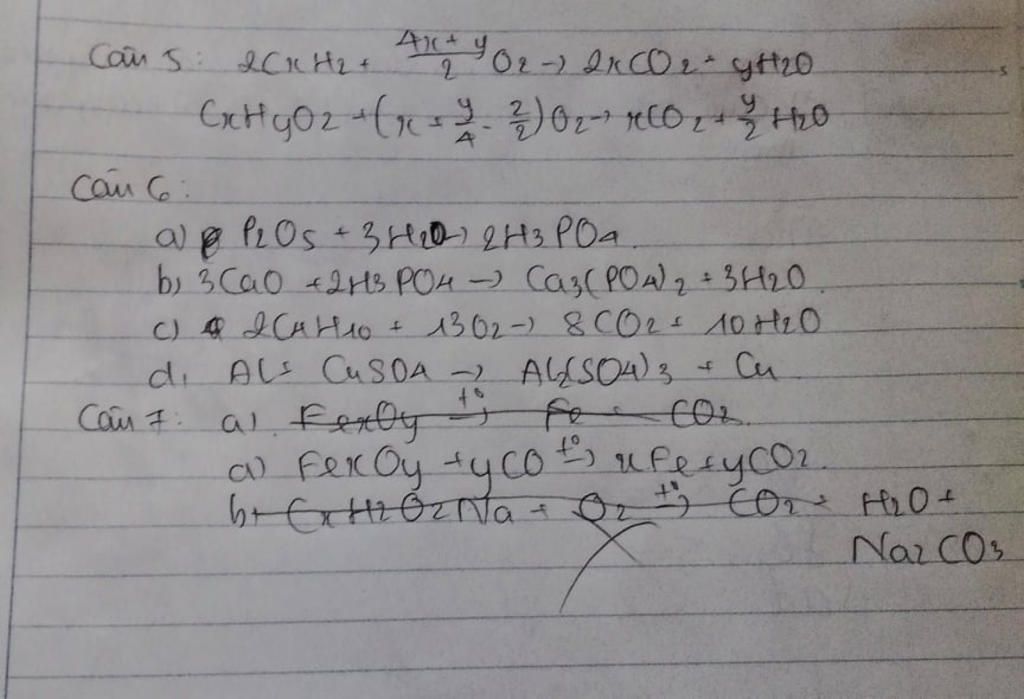 Câu 5: 2CxH2 + 4x+y/2 O2 → 2xCO2 + yH2O
CxHyO2 + (x + y/4 - 2/2)O2 → xCO2 + y/2 H2O
Câu 6:
a) P2O5 + 3H2O → 2H3PO4
b) 3CaO + 2H3PO4 → Ca3(PO4)2 + 3H2O
c) 2C4H10 + 13O2 → 8CO2 + 10H2O
d, Al + CuSO4 → Al2(SO4)3 + Cu
Câu 7: a) FexOy t° → Fe + CO2
a) FexOy + yCO t° → xFe + yCO2
b, CxH2O2Na + O2 t° → CO2 + H2O +
Na2CO3